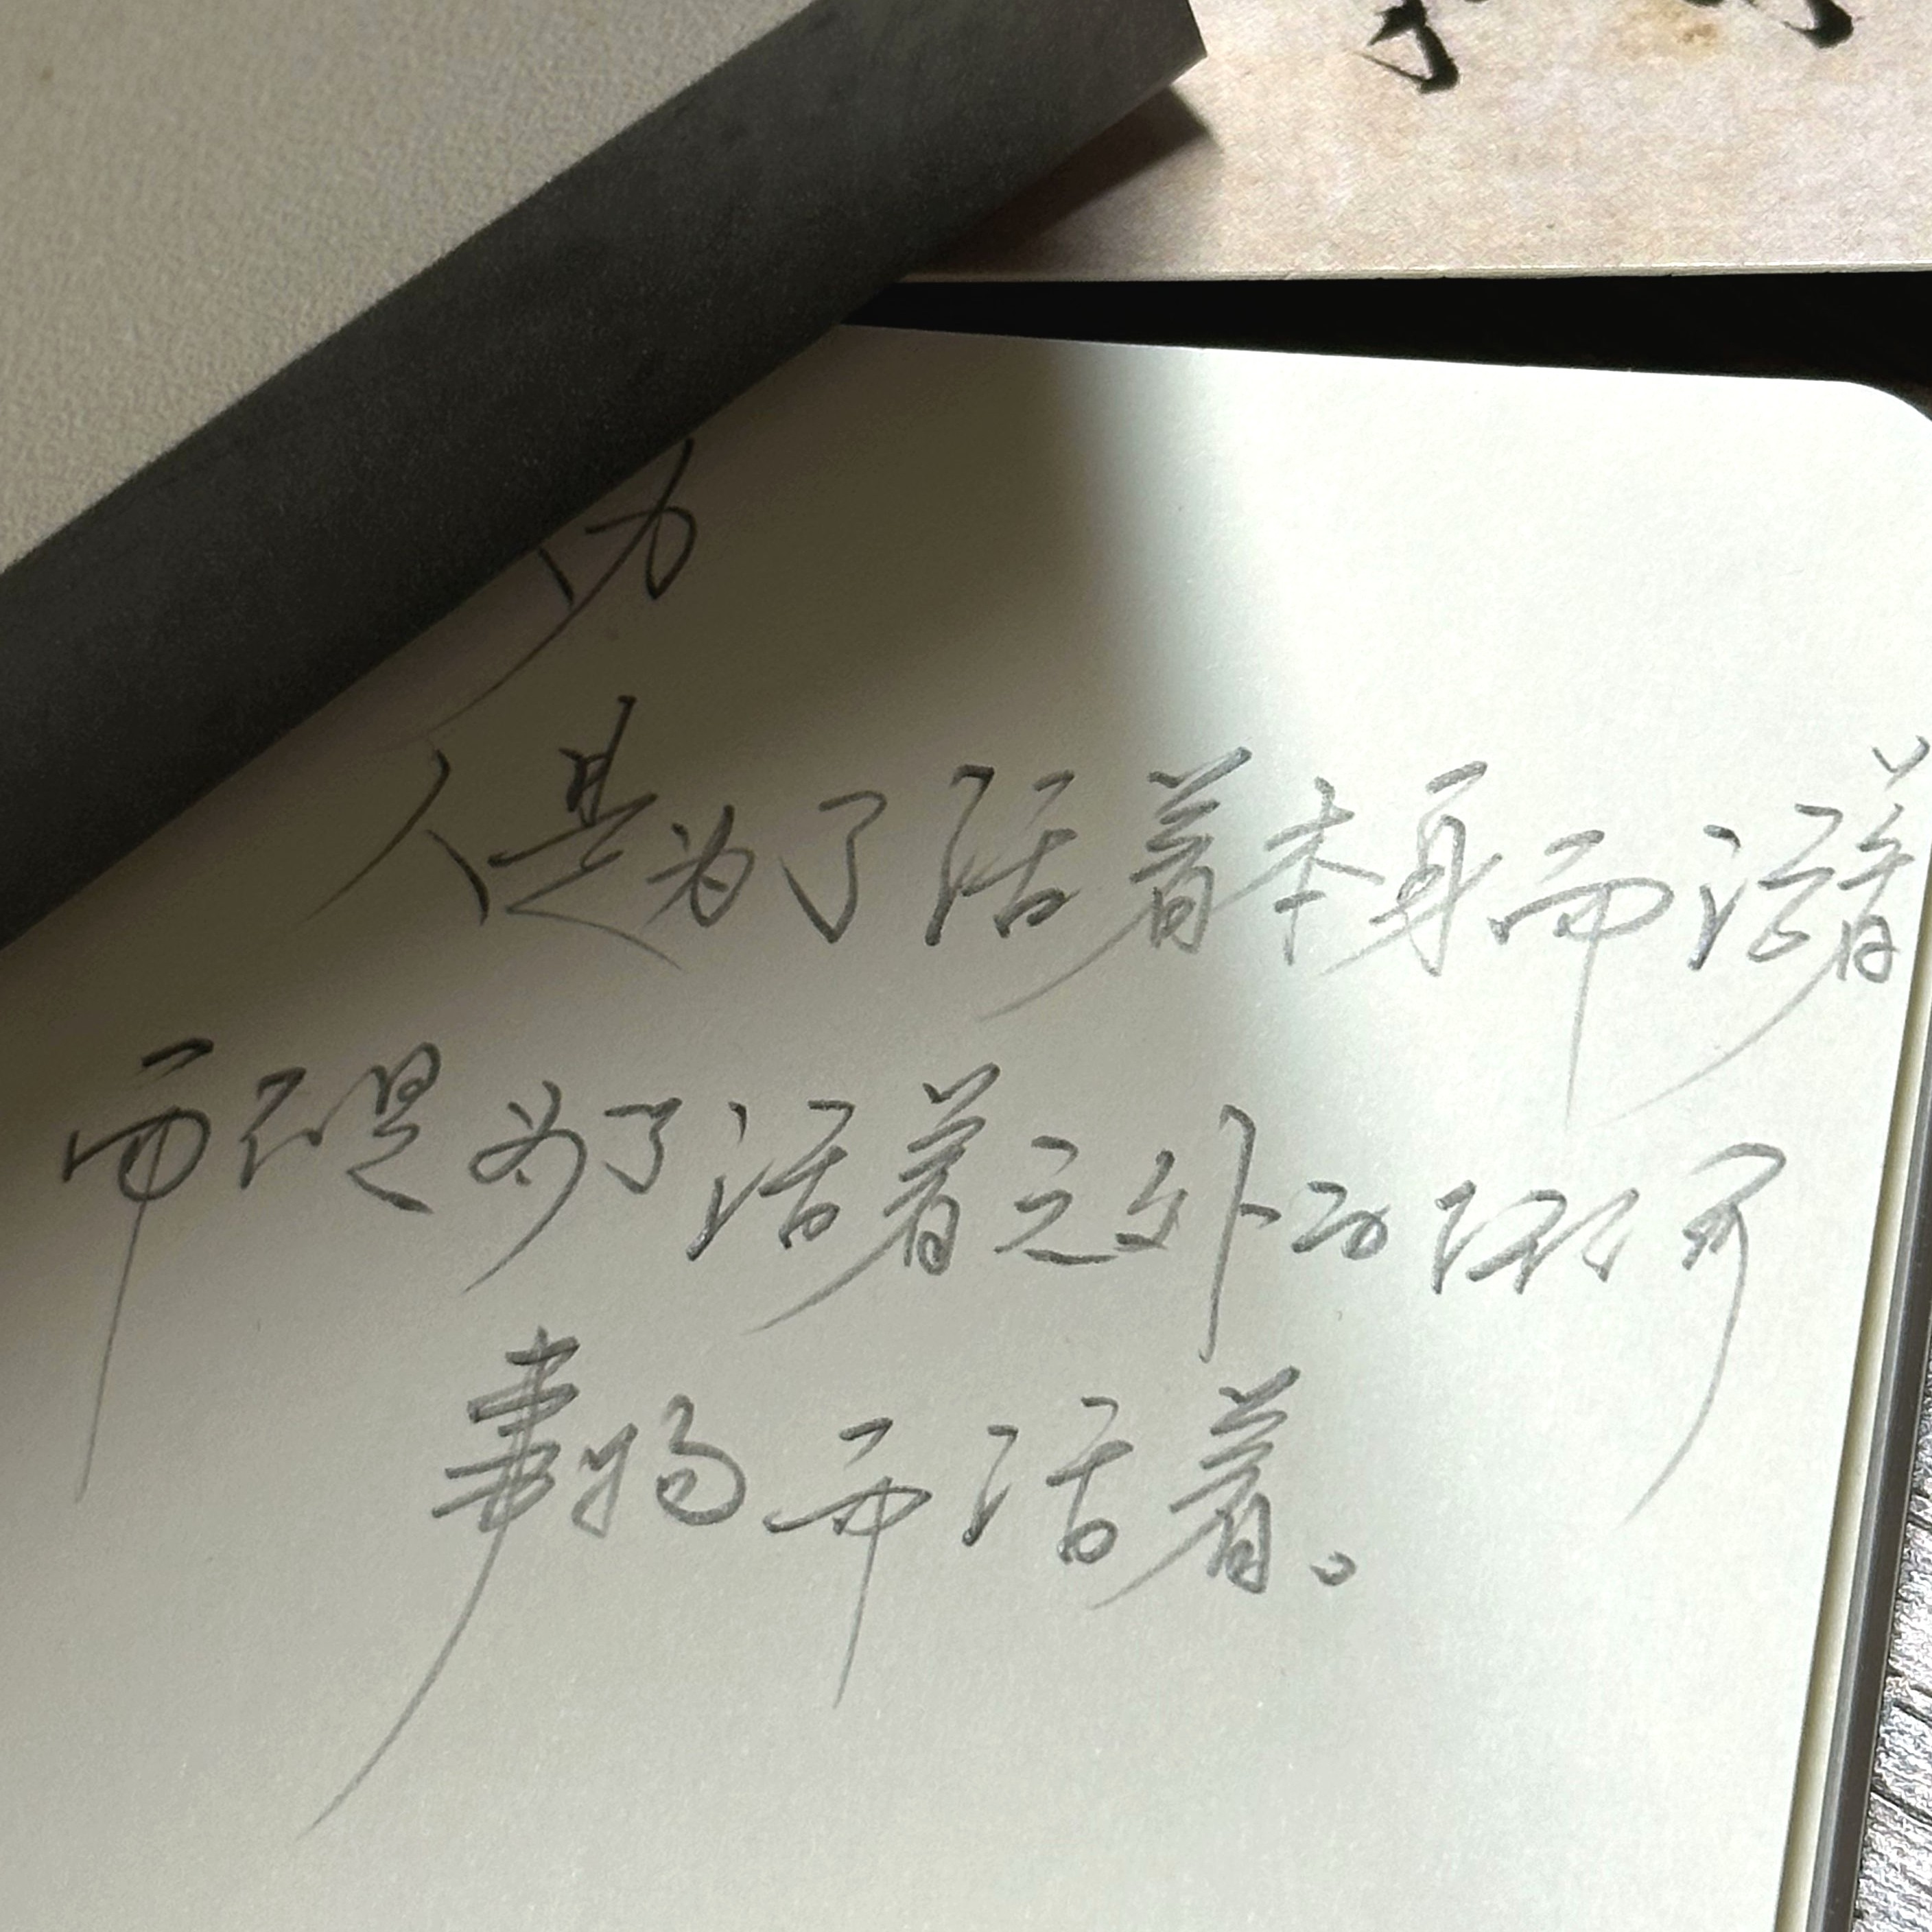 人是为了活着本身而活着
而不是为了活着之外的任何
事物而活着。